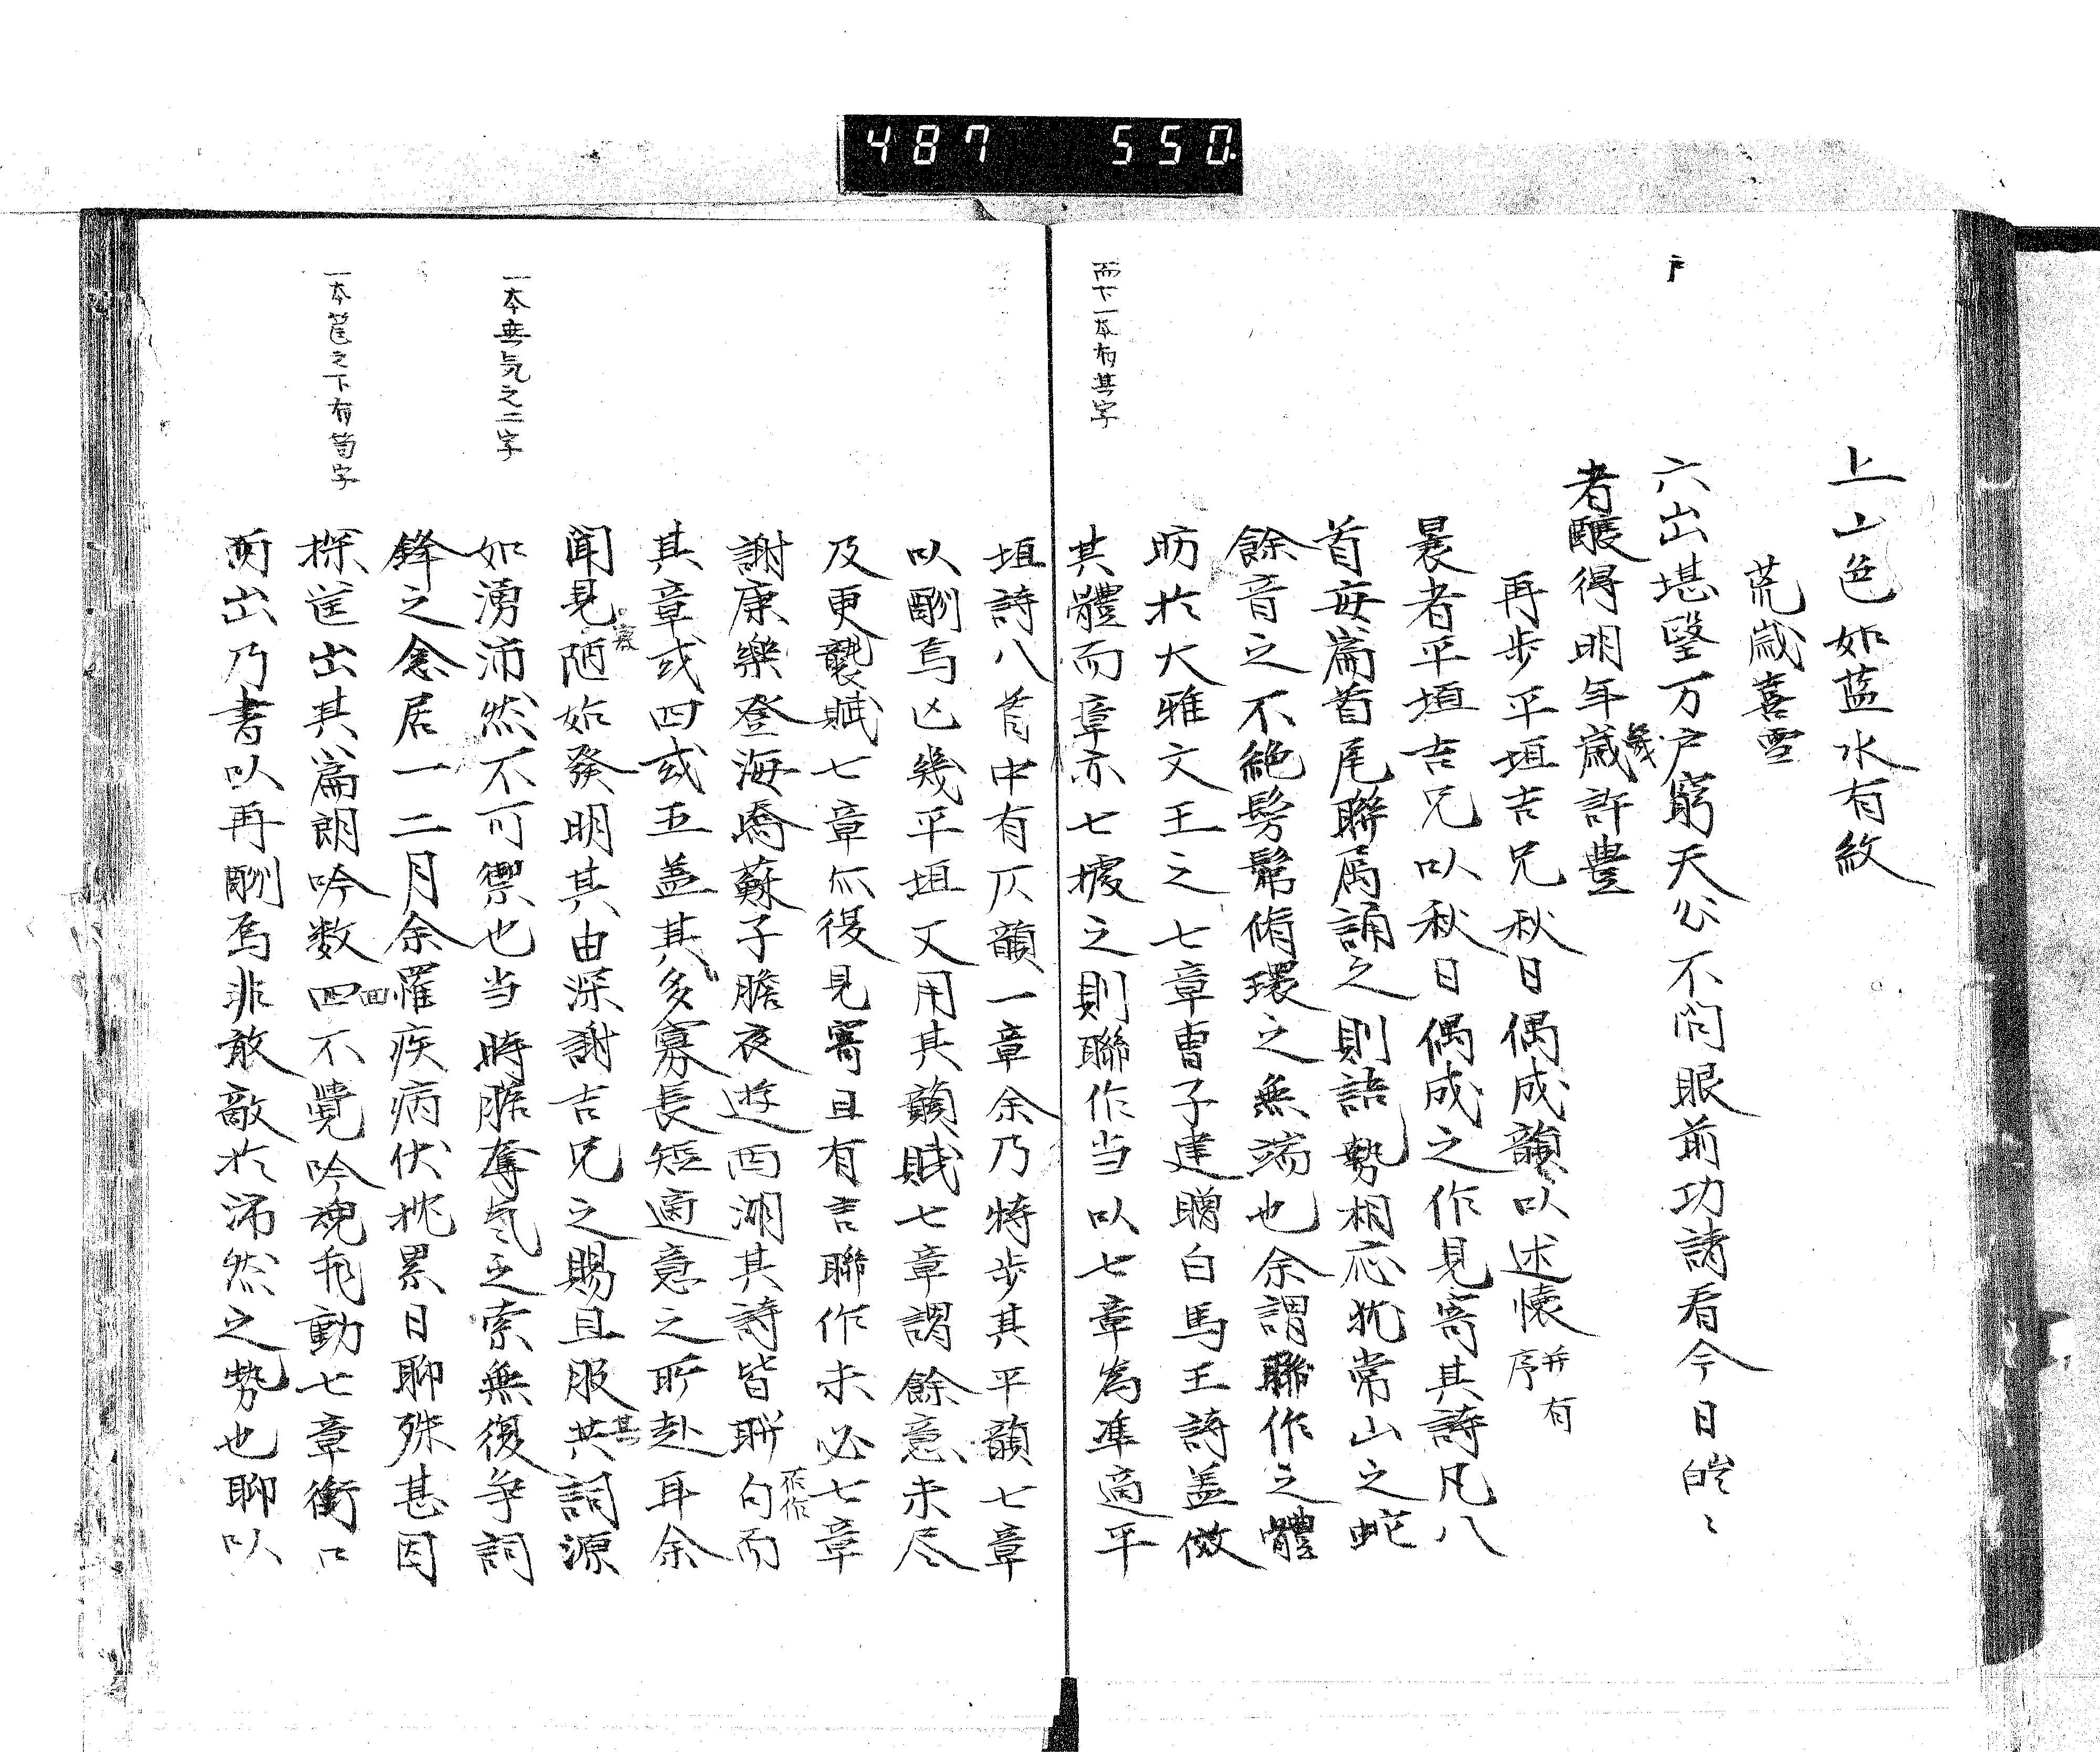 487 550
上山色如藍水有紋
荒歳喜雪
戸
六出堪瑿万戸窮天公不問眼前功請看今日皚〻
者釀得明年歳幾許豊
再步平垣吉兄秋日偶成韻以述懷并有序
曩者平垣吉兄以秋日偶成之作見寄其詩凡八
首每篇首尾聯属誦之則語勢相応犹常山之蛇
餘音之不絶髣髴脩環之無端也余謂聯作之體
昉於大雅文王之七章曹子建贈白馬王詩盖倣
而下一本有其字
其體而章亦七據之則聯作当以七章為準適平
垣詩八首中有仄韻一章余乃特步其平韻七章
以酬焉亡幾平垣又用其韻賦七章謂餘意未尽
及更襲賦七章以復見寄且有言聯作未必七章
謝康樂登海嶠蘇子瞻夜遊西湖其詩皆聨句而
作
其章或四或五盖其多寡長短適意之所赴耳余
聞見寡陋始發明其由深謝吉兄之賜且服其詞源
一本無気之二字
如湧沛然不可禦也当時膽奪気之索無復争詞
鋒之念居一二月余羅疾病伏枕累日聊殊甚因
一本筐之下有笥字
探筐出其篇朗吟数四回不覺吟魂飛動七章衝口
而出乃書以再酬焉非敢敵於沛然之勢也聊以